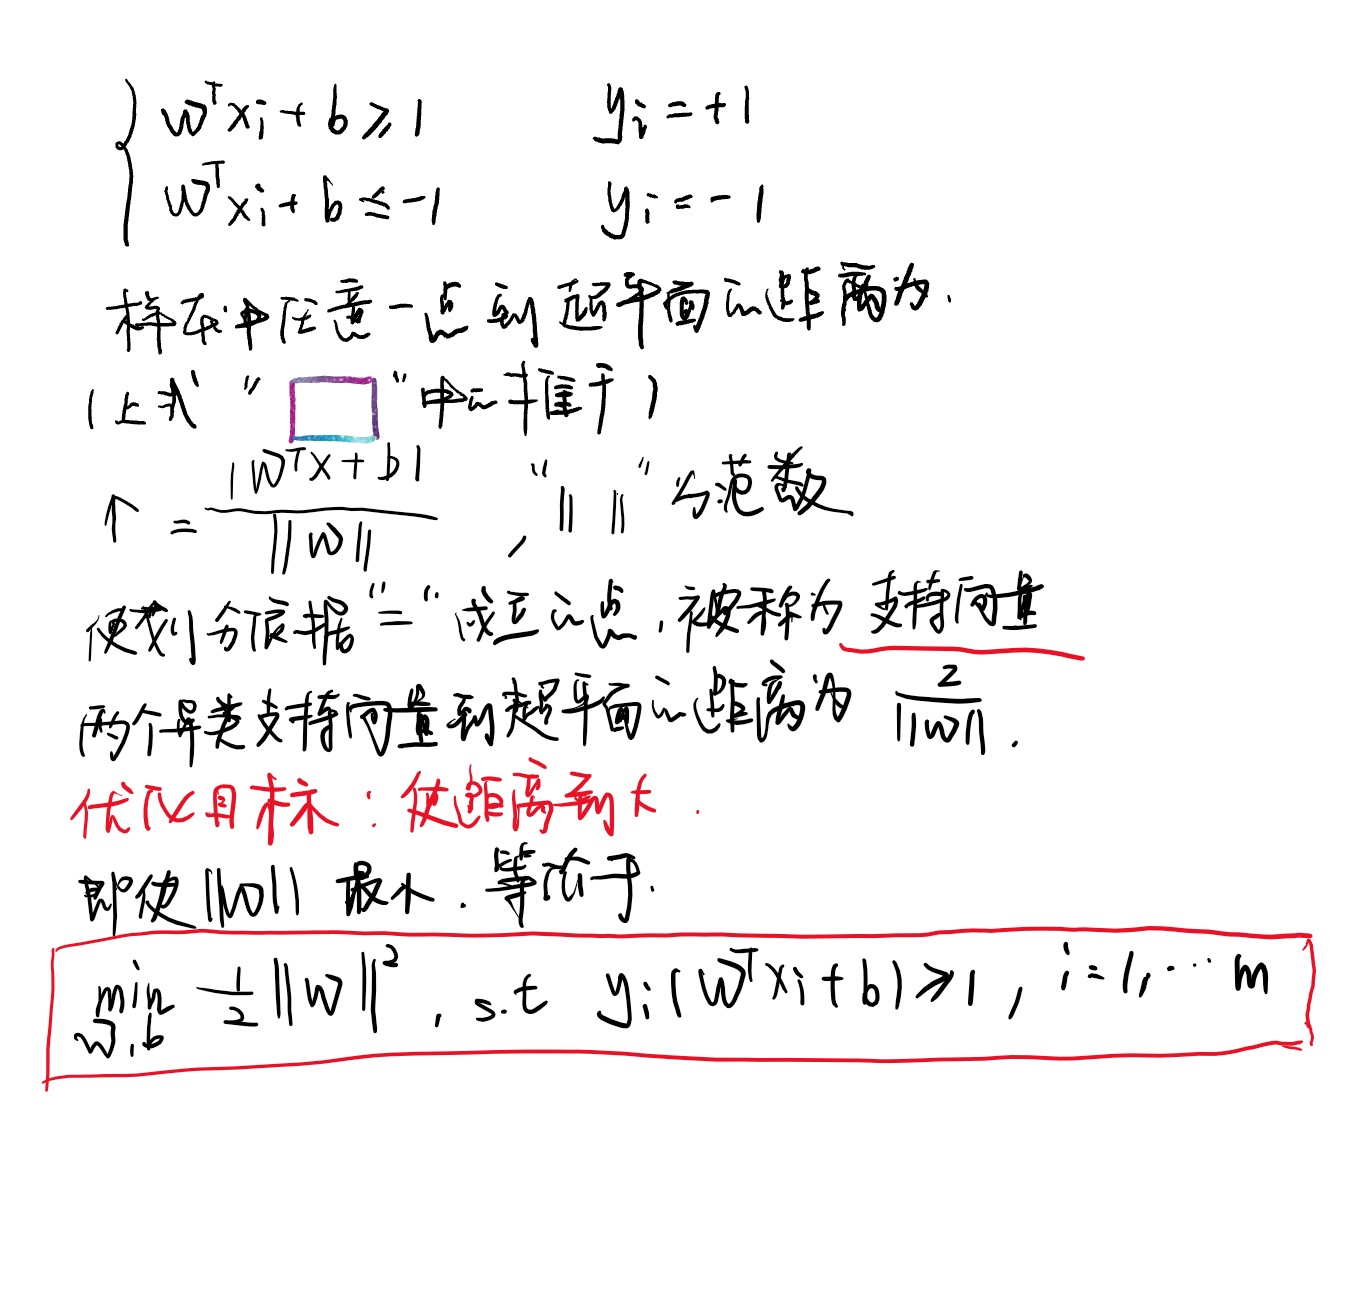 { wᵀxi + b ≥ 1 yi = +1
wᵀxi + b ≤ -1 yi = -1
样本中任意一点到超平面的距离为.
(上式“□”中的推广)
r = |wᵀx + b| / ||w|| , “|| ||”为范数
使划分依据“=”成立的点,被称为 支持向量
两个异类支持向量到超平面的距离为 2 / ||w|| .
优化目标:使距离到大.
即使||w||最小.等价于.
min w,b ½||w||², s.t yi(wᵀxi + b) ≥ 1, i = 1, ··· m